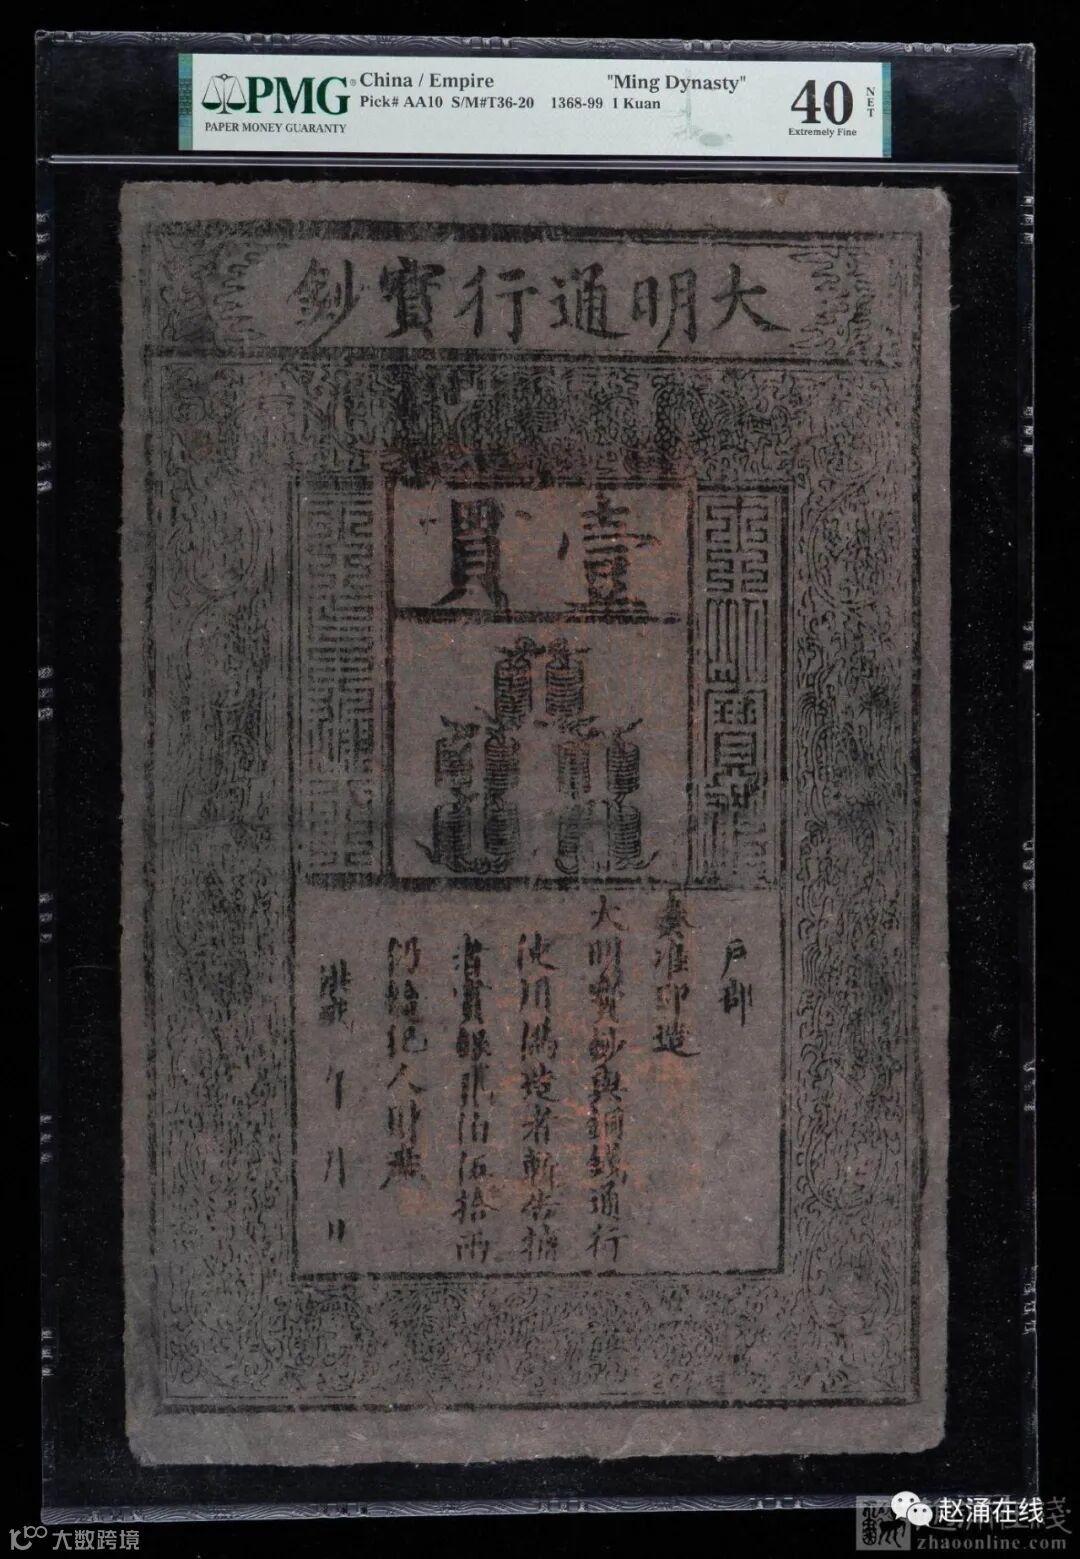 PMG
PAPER MONEY GUARANTY
China / Empire
"Ming Dynasty"
Pick# AA10 S/M#T36-20 1368-99 1 Kuan
40
NET
Extremely Fine
大明通行寶鈔
壹貫
大明寶鈔
天下通行
戶部
奏准印造
大明寶鈔與銅錢通行
使用偽造者斬告捕
者賞銀貳伯伍拾兩
仍給犯人財產
洪武 年 月 日
大数跨境
赵涌在线
zhaoonline.com